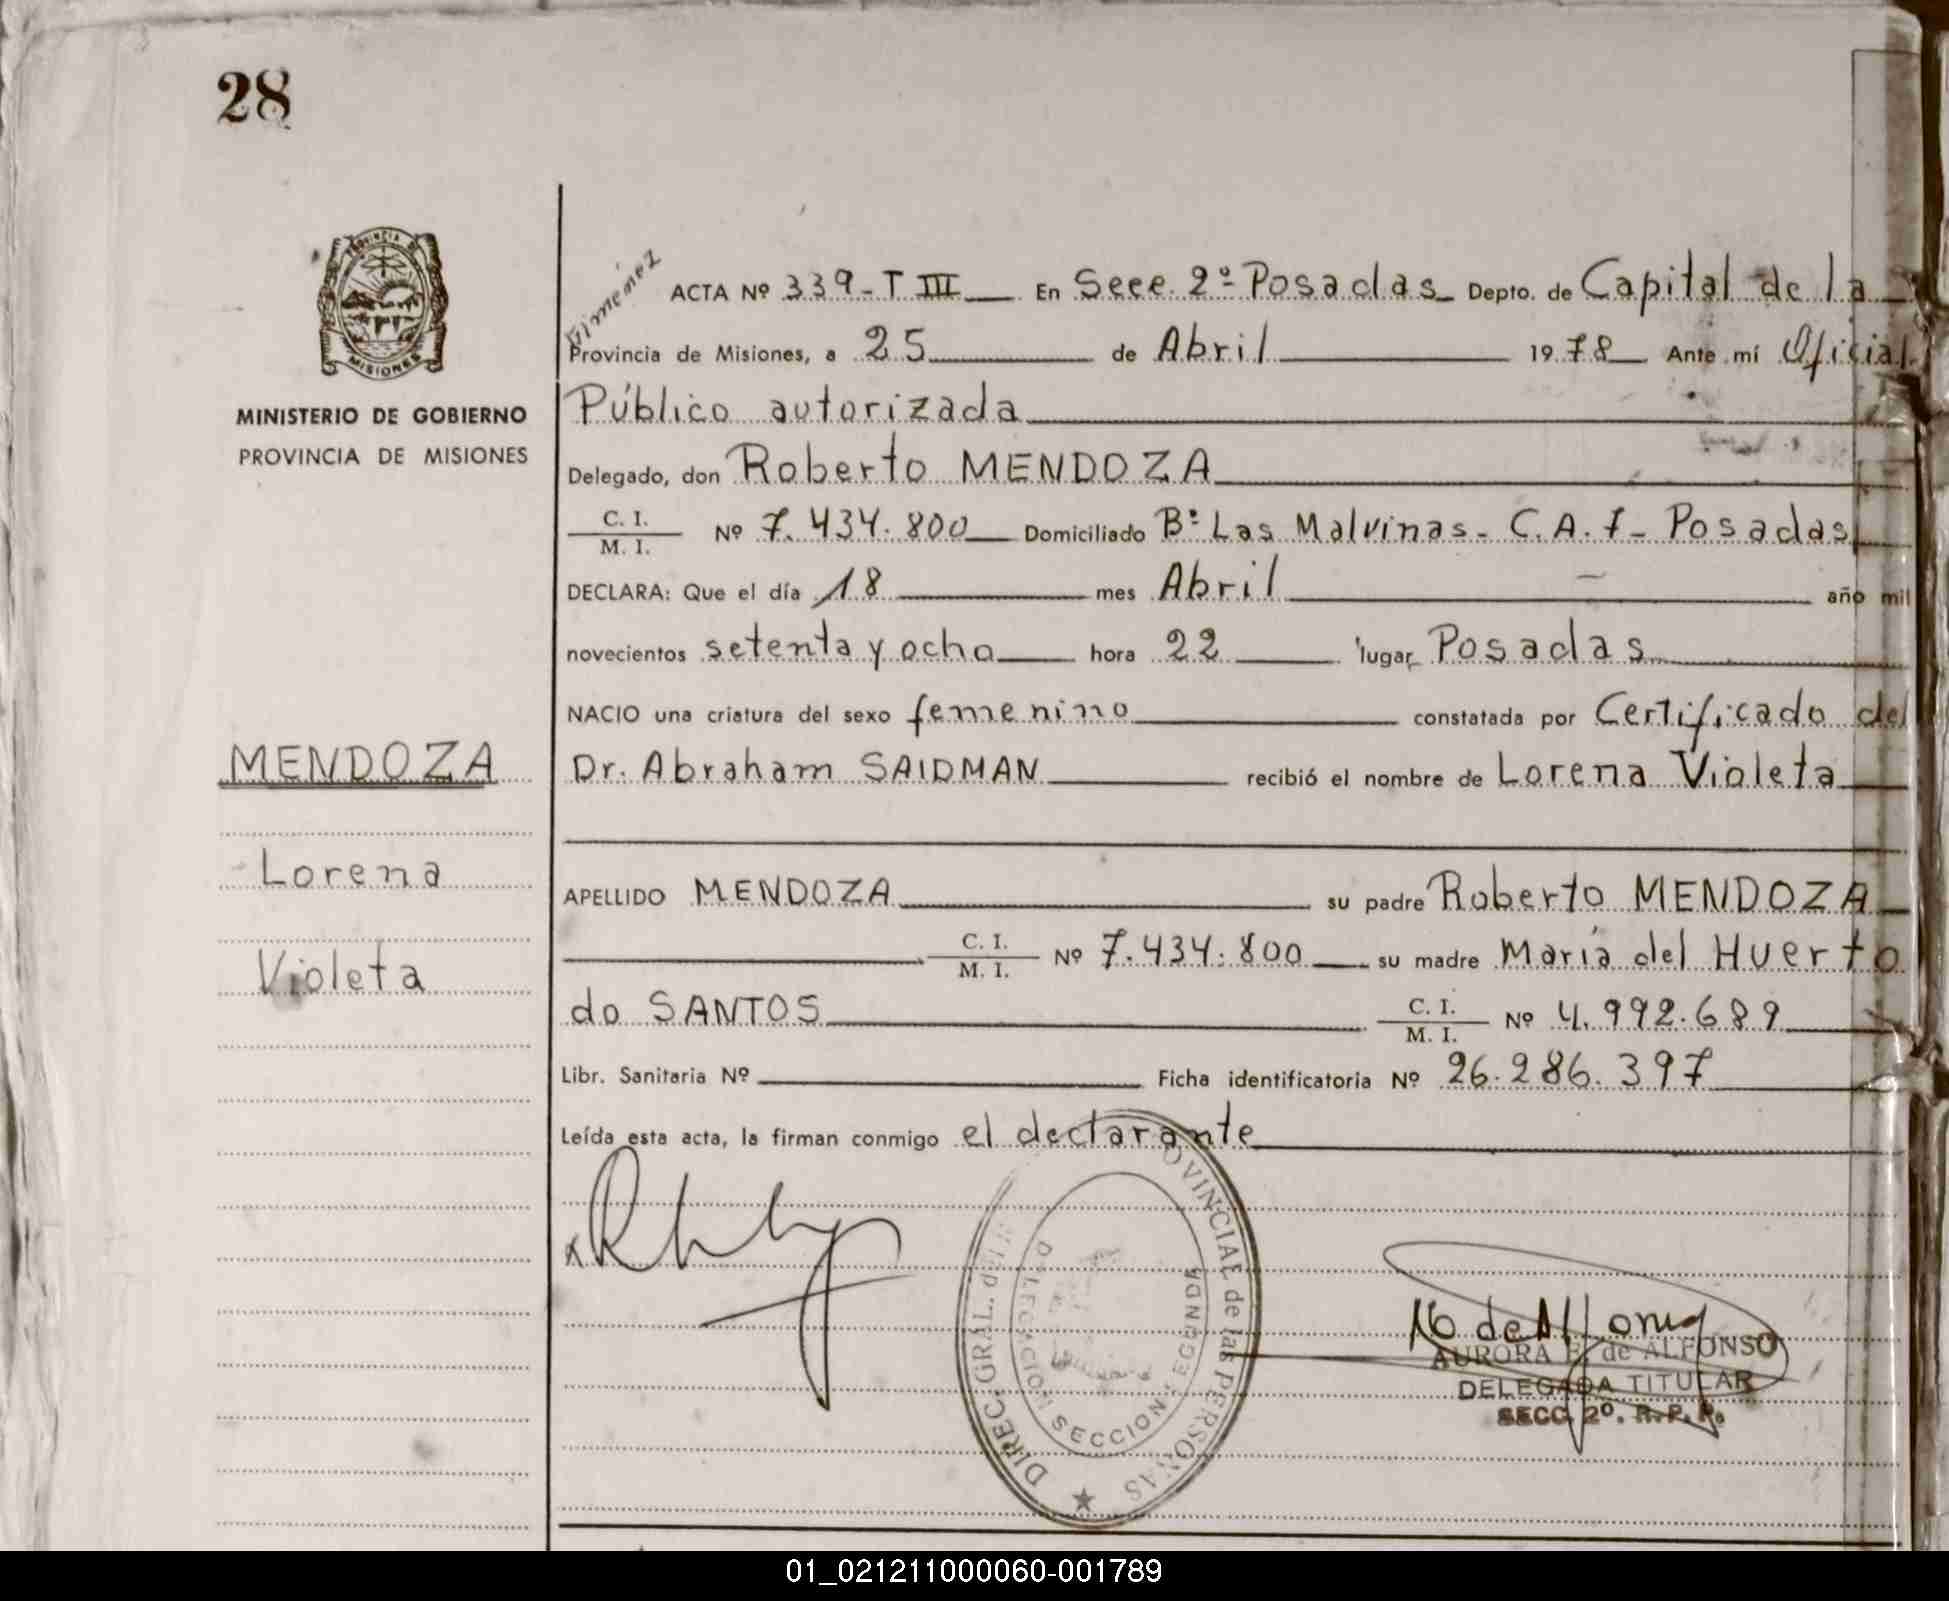 28
PROVINCIA DE
MISIONES
MINISTERIO DE GOBIERNO
PROVINCIA DE MISIONES
MENDOZA
Lorena
Violeta
Gimenez
ACTA Nº 339-T III En Secc. 2º Posadas Depto. de Capital de la
Provincia de Misiones, a 25 de Abril 1978 Ante mí Oficial
Público autorizada
Delegado, don Roberto MENDOZA
C. I.
M. I. Nº 7.434.800 Domiciliado Bº Las Malvinas - C.A.7 - Posadas
DECLARA: Que el día 18 mes Abril año mil
novecientos setenta y ocho hora 22 lugar Posadas
NACIO una criatura del sexo femenino constatada por Certificado del
Dr. Abraham SAIDMAN recibió el nombre de Lorena Violeta
APELLIDO MENDOZA su padre Roberto MENDOZA
C. I.
M. I. Nº 7.434.800 su madre María del Huerto
do SANTOS C. I.
M. I. Nº 4.992.689
Libr. Sanitaria Nº Ficha identificatoria Nº 26.286.397
Leída esta acta, la firman conmigo el declarante
DIREC. GRAL. PROVINCIAL de las PERSONAS
DELEGACION SECCION SEGUNDA
de Alfonso
AURORA E. de ALFONSO
DELEGADA TITULAR
SECC. 2º. R. P. P.
01_021211000060-001789